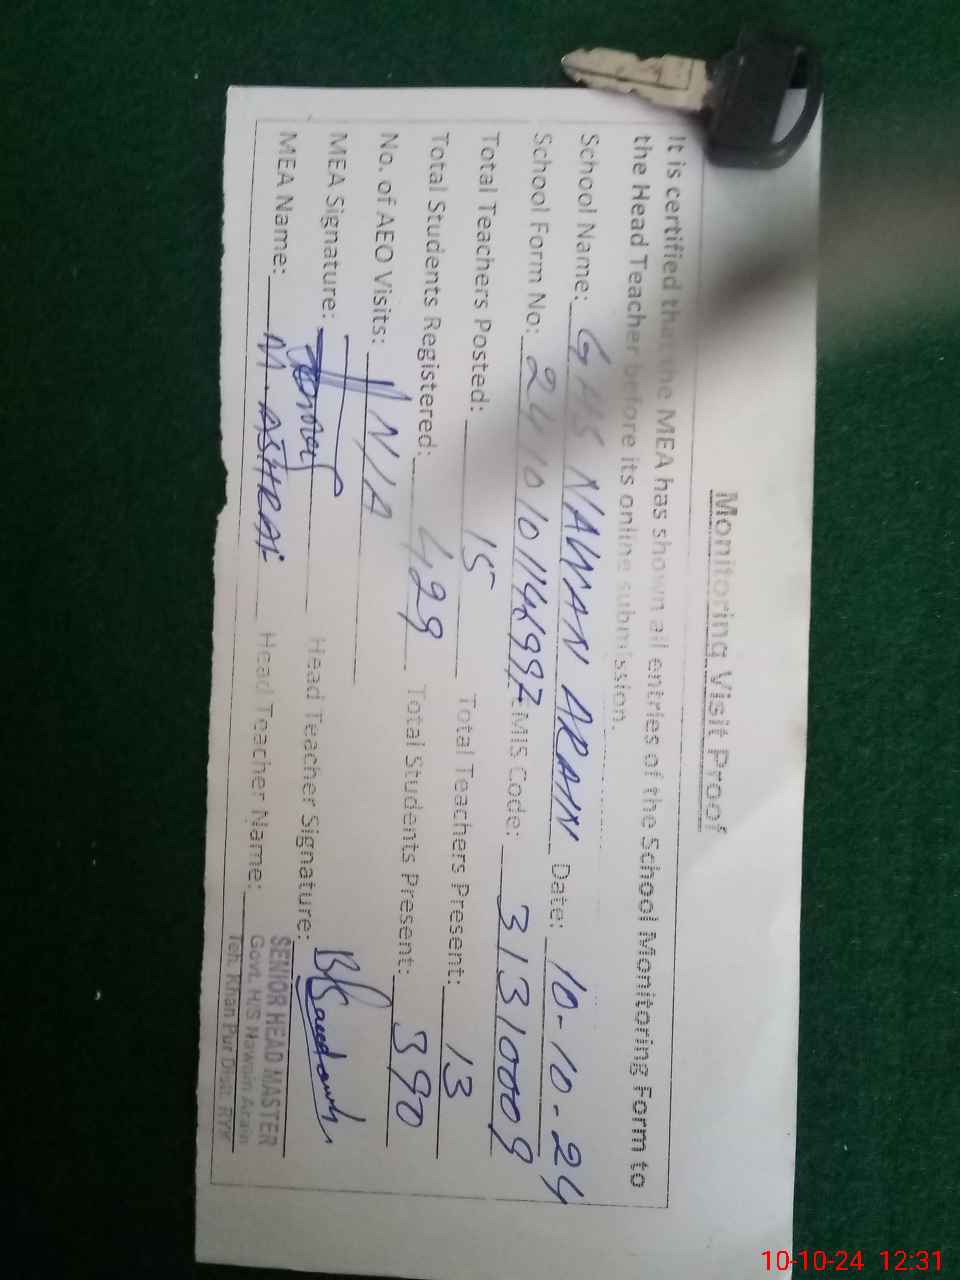 Monitoring Visit Proof
It is certified that the MEA has shown all entries of the School Monitoring Form to
the Head Teacher before its online submission.
School Name: GHS NAWAN ARAIN Date: 10-10-24
School Form No: EMIS Code: 31310009
Total Teachers Posted: 15 Total Teachers Present: 13
Total Students Registered: 429 Total Students Present: 390
No. of AEO Visits: N/A
MEA Signature: Head Teacher Signature:
MEA Name: M. ASHRAF Head Teacher Name:
SENIOR HEAD MASTER
Govt. H/S Nawain Arain
Teh. Khan Pur Distt. RYK
10-10-24 12:31